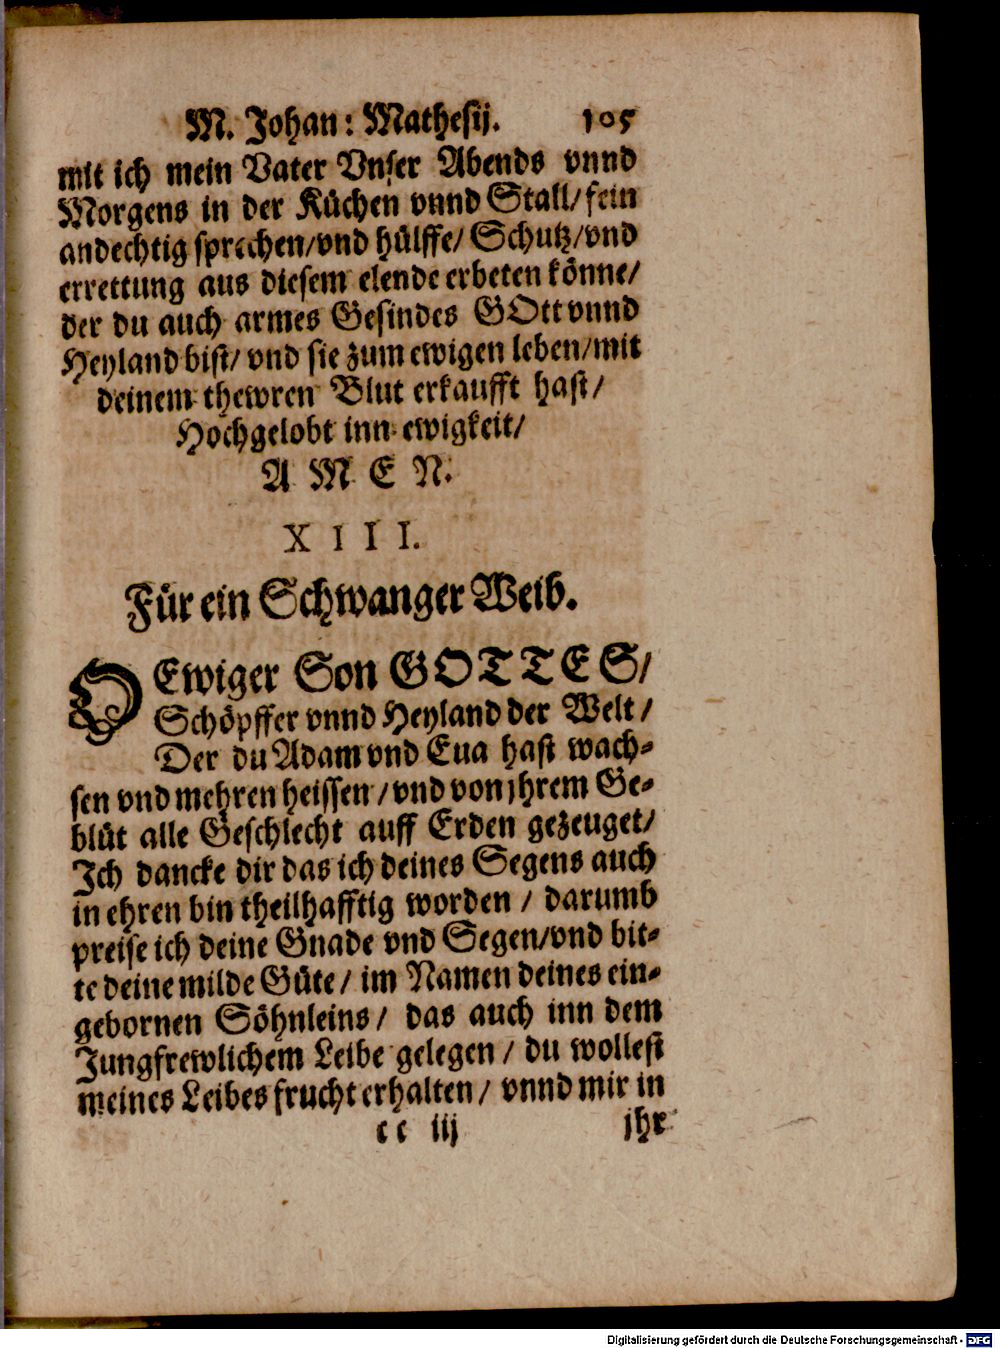 M. Johan: Mathesij. 105
mit ich mein Vater Vnser Abends vnnd
Morgens in der Küchen vnnd Stall/ fein
andechtig sprechen/vnd hülffe/ Schutz/vnd
errettung aus diesem elende erbeten könne/
der du auch armes Gesindes GOtt vnnd
Heyland bist/ vnd sie zum ewigen leben/mit
deinem thewren Blut erkaufft hast/
Hochgelobt inn ewigkeit/
A M E N.
XIII.
Für ein Schwanger Weib.
O Ewiger Son GOTTES/
Schöpffer vnnd Heyland der Welt/
Der du Adam vnd Eua hast wach-
sen vnd mehren heissen/vnd von jhrem Ge-
blüt alle Geschlecht auff Erden gezeuget/
Ich dancke dir das ich deines Segens auch
in ehren bin theilhafftig worden/ darumb
preise ich deine Gnade vnd Segen/vnd bit-
te deine milde Güte/ im Namen deines ein-
gebornen Söhnleins/ das auch inn dem
Jungfrewlichem Leibe gelegen/ du wollest
meines Leibes frucht erhalten/ vnnd mir in
cc iij jhr
Digitalisierung gefördert durch die Deutsche Forschungsgemeinschaft - DFG